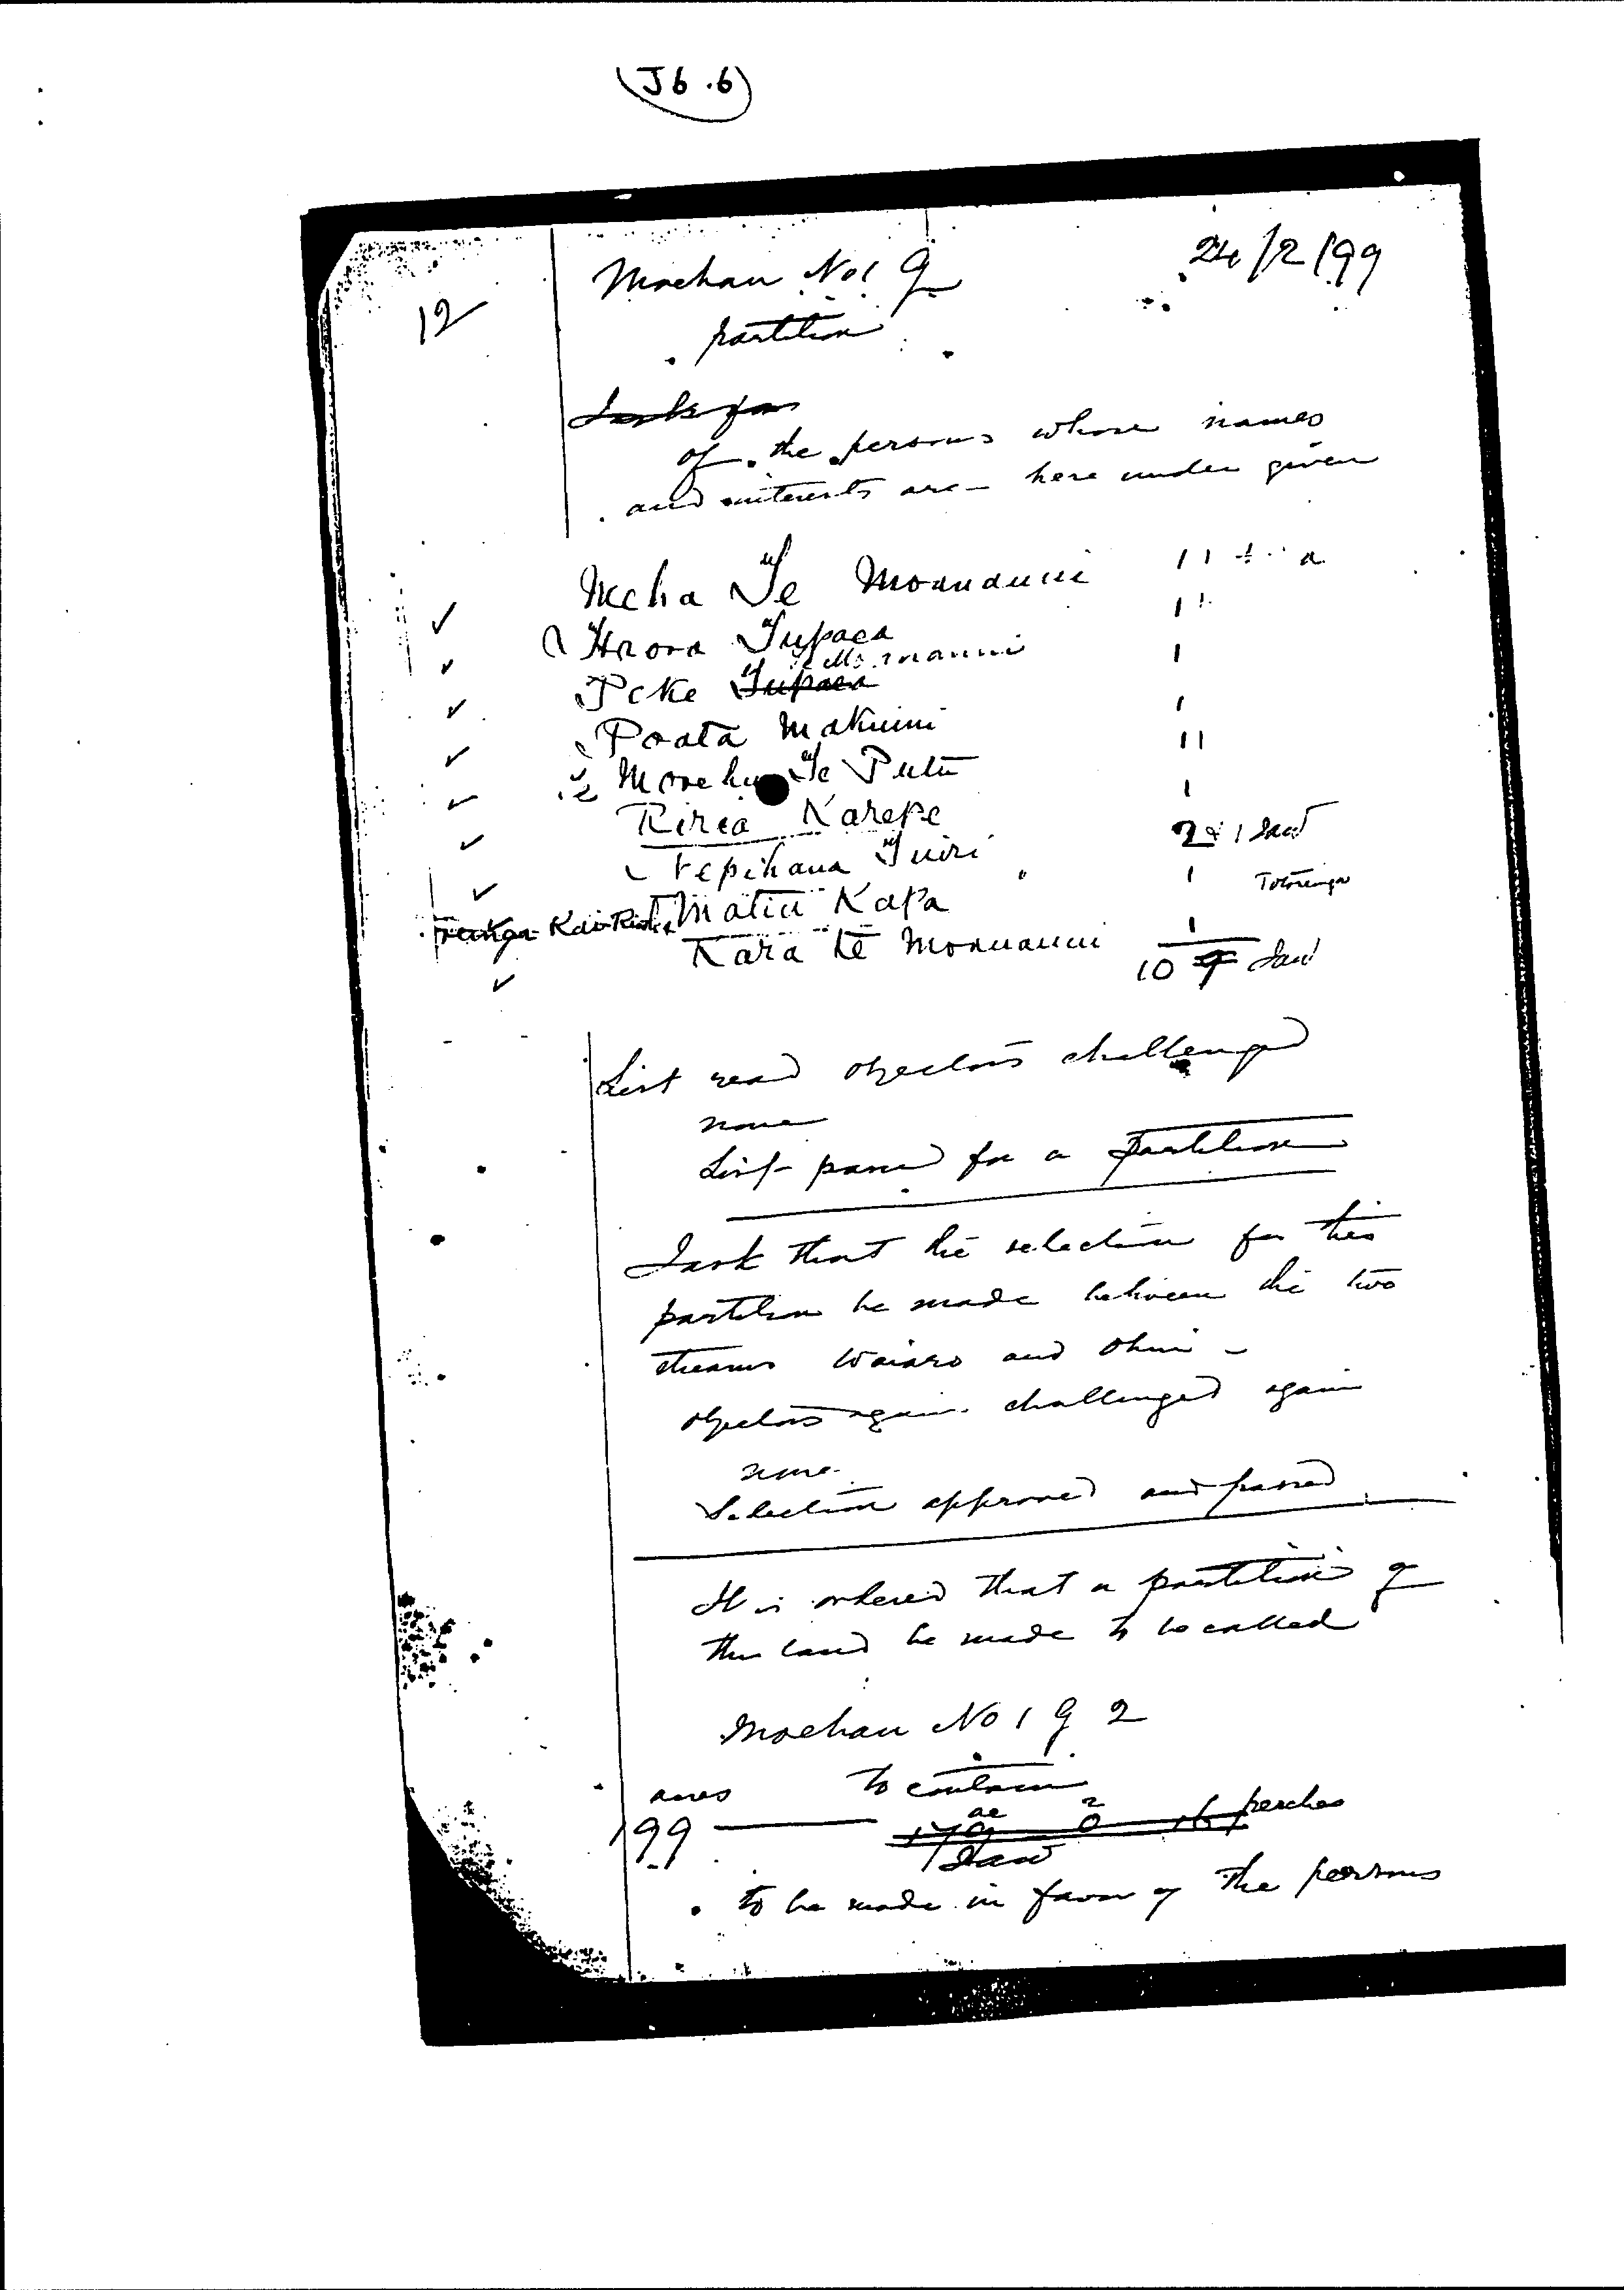 (J6.6)
Moehau No 1 G 24/2/99
12
partition
I ask for
of the persons whose names
and interests are here under given
Meha Te Moananui
Tupaea
Peke Tupaea
Poata Makuini
Te Putu
Kiria Karepe
2 & 1
Matiu Kapa 1
Kara te Moananui 1
10 9
List read objectors challenged
none
List passed for a partition
I ask that the selection for this
partition be made between the two
streams Waiaro and Ohui
objectors again challenged again
none
Selection approved and passed
It is ordered that a partition of
this land be made to be called
Moehau No 1 G 2
acres to contain
199 perches
to be made in favor of the persons